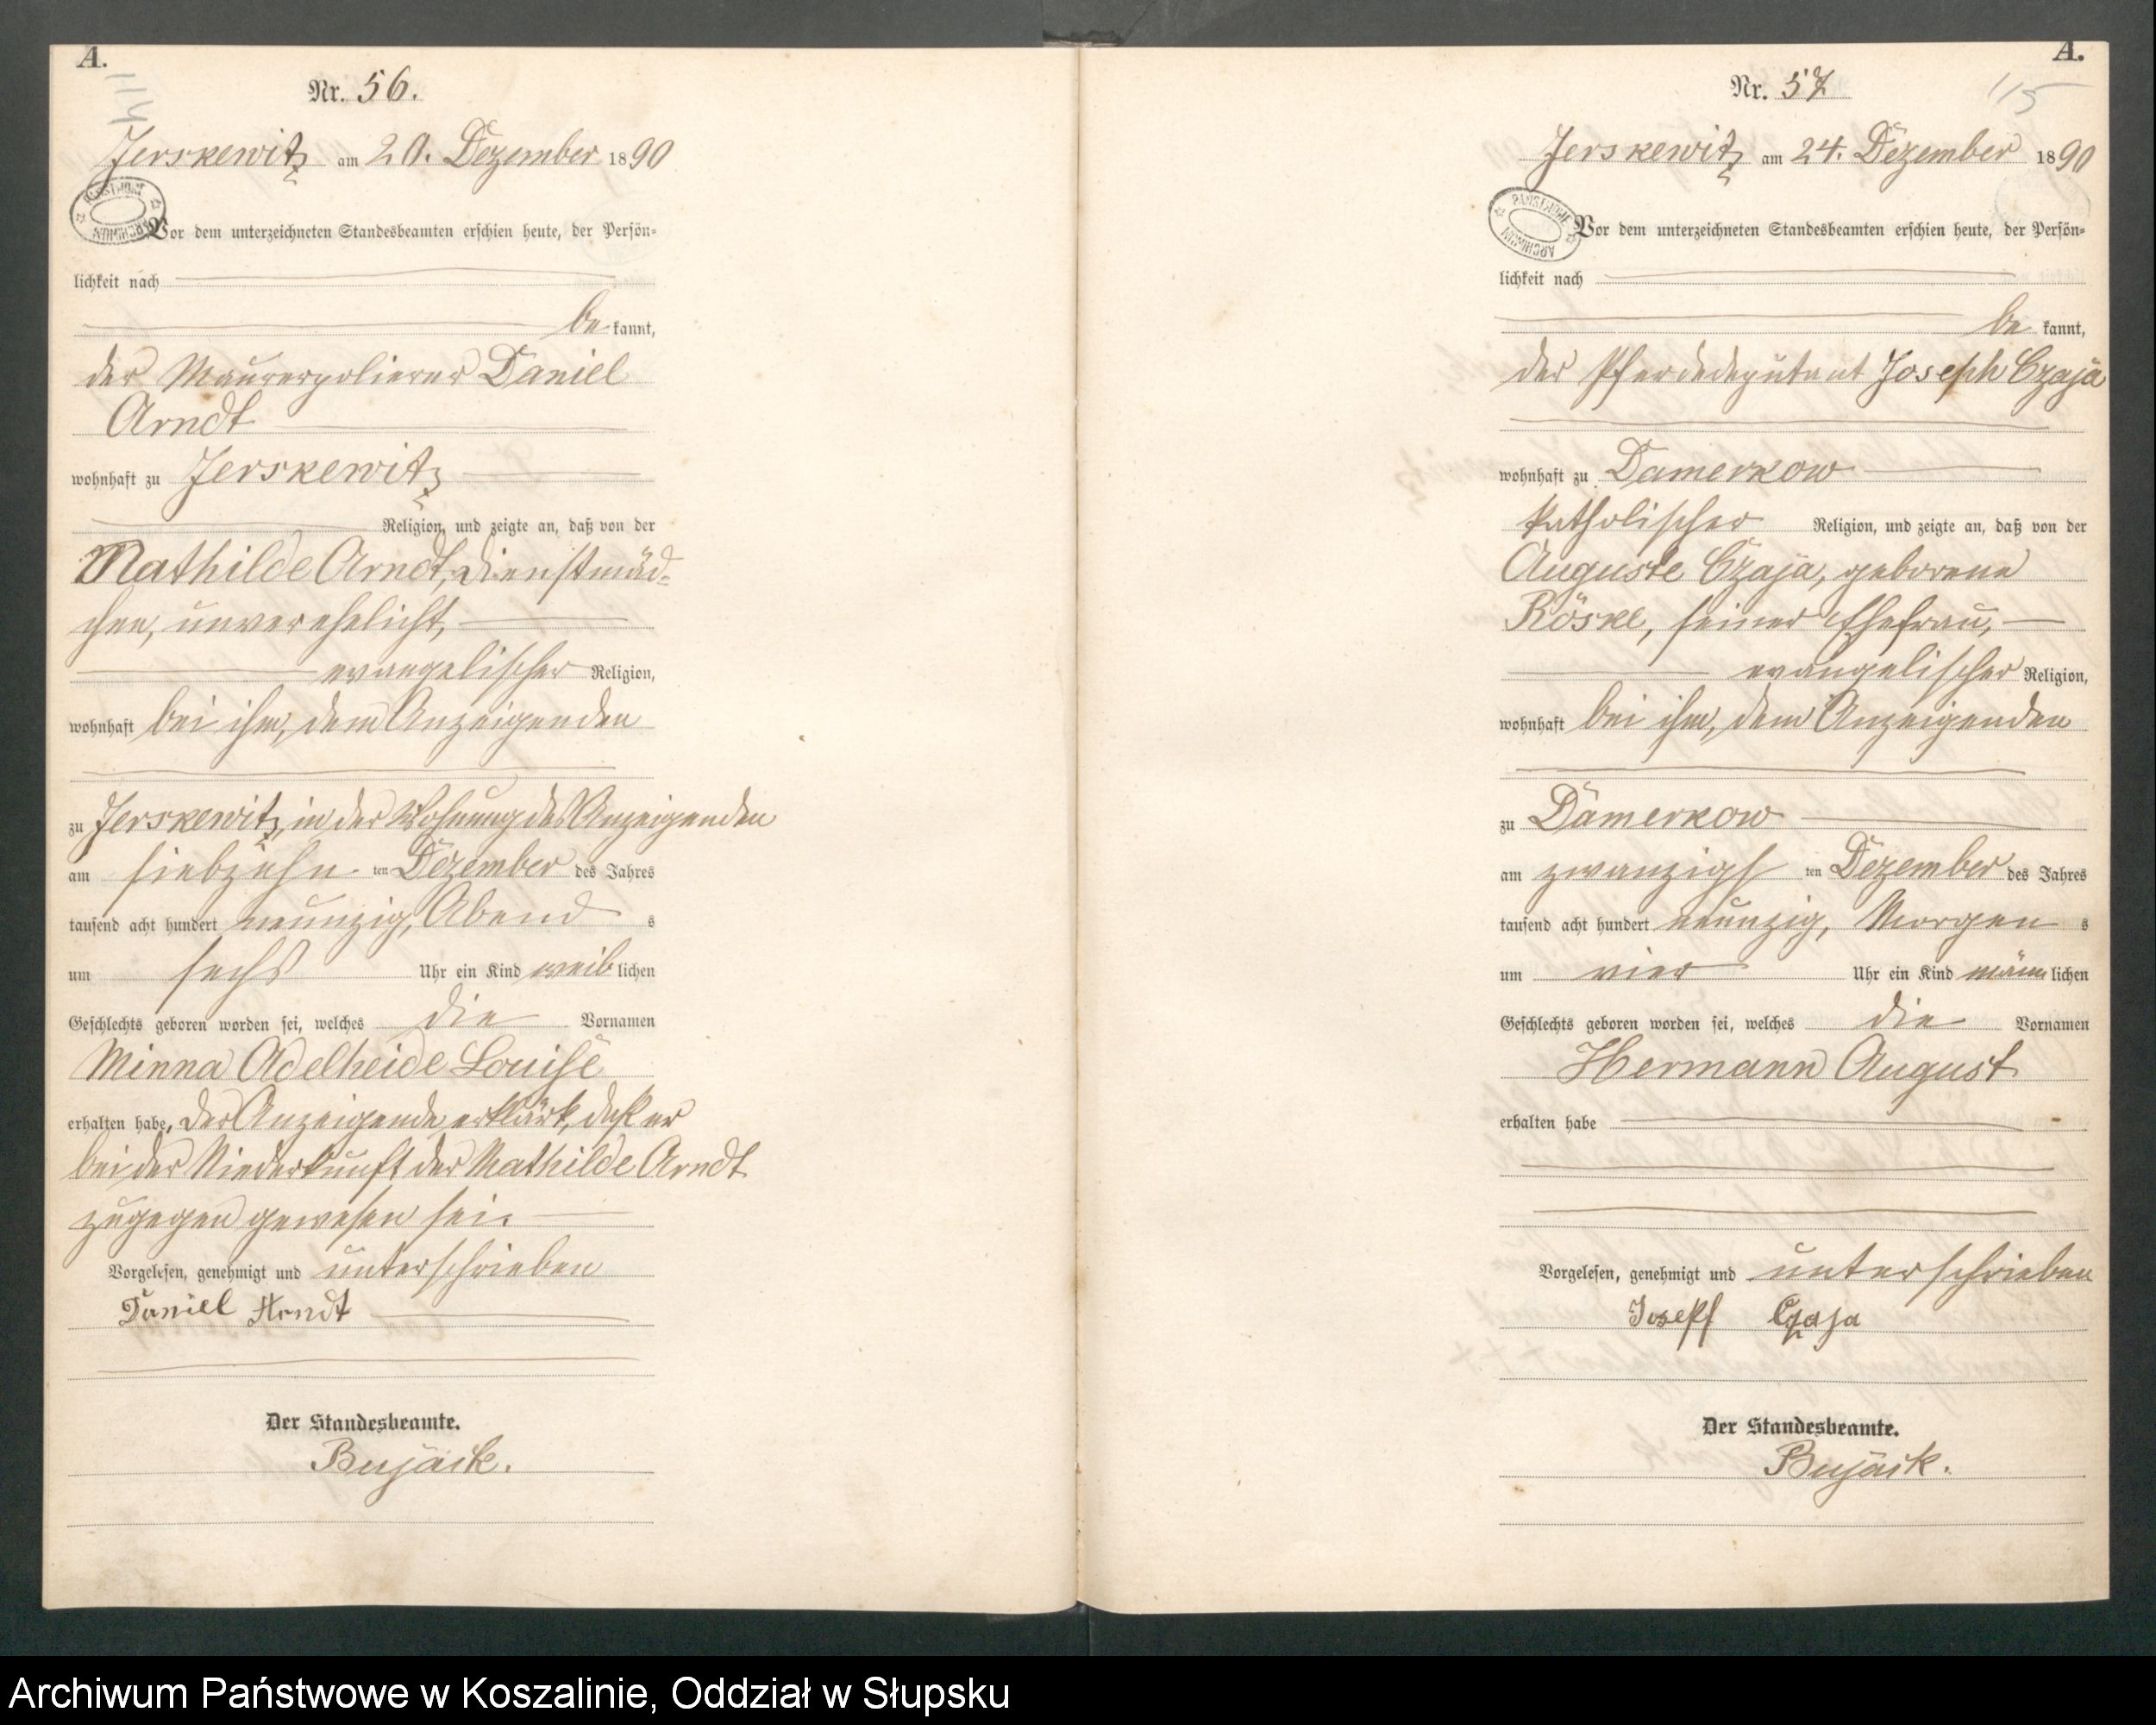 A.
114
Nr. 56.
Jerskewitz am 20. Dezember 1890
Vor dem unterzeichneten Standesbeamten erschien heute, der Persön-
lichkeit nach
be kannt,
der Maurerpolierer Daniel
Arndt
wohnhaft zu Jerskewitz
Religion, und zeigte an, daß von der
Mathilde Arndt, Dienstmäd-
chen, unverehelicht,
evangelischer Religion,
wohnhaft bei ihm, dem Anzeigenden
zu Jerskewitz, in der Wohnung des Anzeigenden
am siebzehn ten Dezember des Jahres
tausend acht hundert neunzig, Abend s
um sechs Uhr ein Kind weiblichen
Geschlechts geboren worden sei, welches die Vornamen
Minna Adelheide Louise
erhalten habe, der Anzeigende erklärt, daß er
bei der Niederkunft der Mathilde Arndt
zugegen gewesen sei.
Vorgelesen, genehmigt und unterschrieben
Daniel Arndt
Der Standesbeamte.
Bujäck.
A.
115
Nr. 57
Jerskewitz am 24. Dezember 1890
ARCHIWUM PAŃSTWOWE
Vor dem unterzeichneten Standesbeamten erschien heute, der Persön-
lichkeit nach
be kannt,
der Pferdedeputant Joseph Czaja
wohnhaft zu Damerkow
katholischer Religion, und zeigte an, daß von der
Auguste Czaja, geborene
Röske, seiner Ehefrau,
evangelischer Religion,
wohnhaft bei ihm, dem Anzeigenden
zu Damerkow
am zwanzigs ten Dezember des Jahres
tausend acht hundert neunzig, Morgen s
um vier Uhr ein Kind männlichen
Geschlechts geboren worden sei, welches die Vornamen
Hermann August
erhalten habe
Vorgelesen, genehmigt und unterschrieben
Josepf Czaja
Der Standesbeamte.
Bujäck.
Archiwum Państwowe w Koszalinie, Oddział w Słupsku